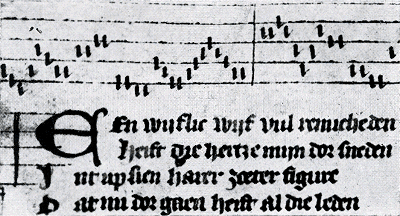 En wijflic wijf vul reinicheden
Heift die hertze mijn dor sneden
Int upsien harer zoeter figure
Dat nu dor gaen heift al die leden